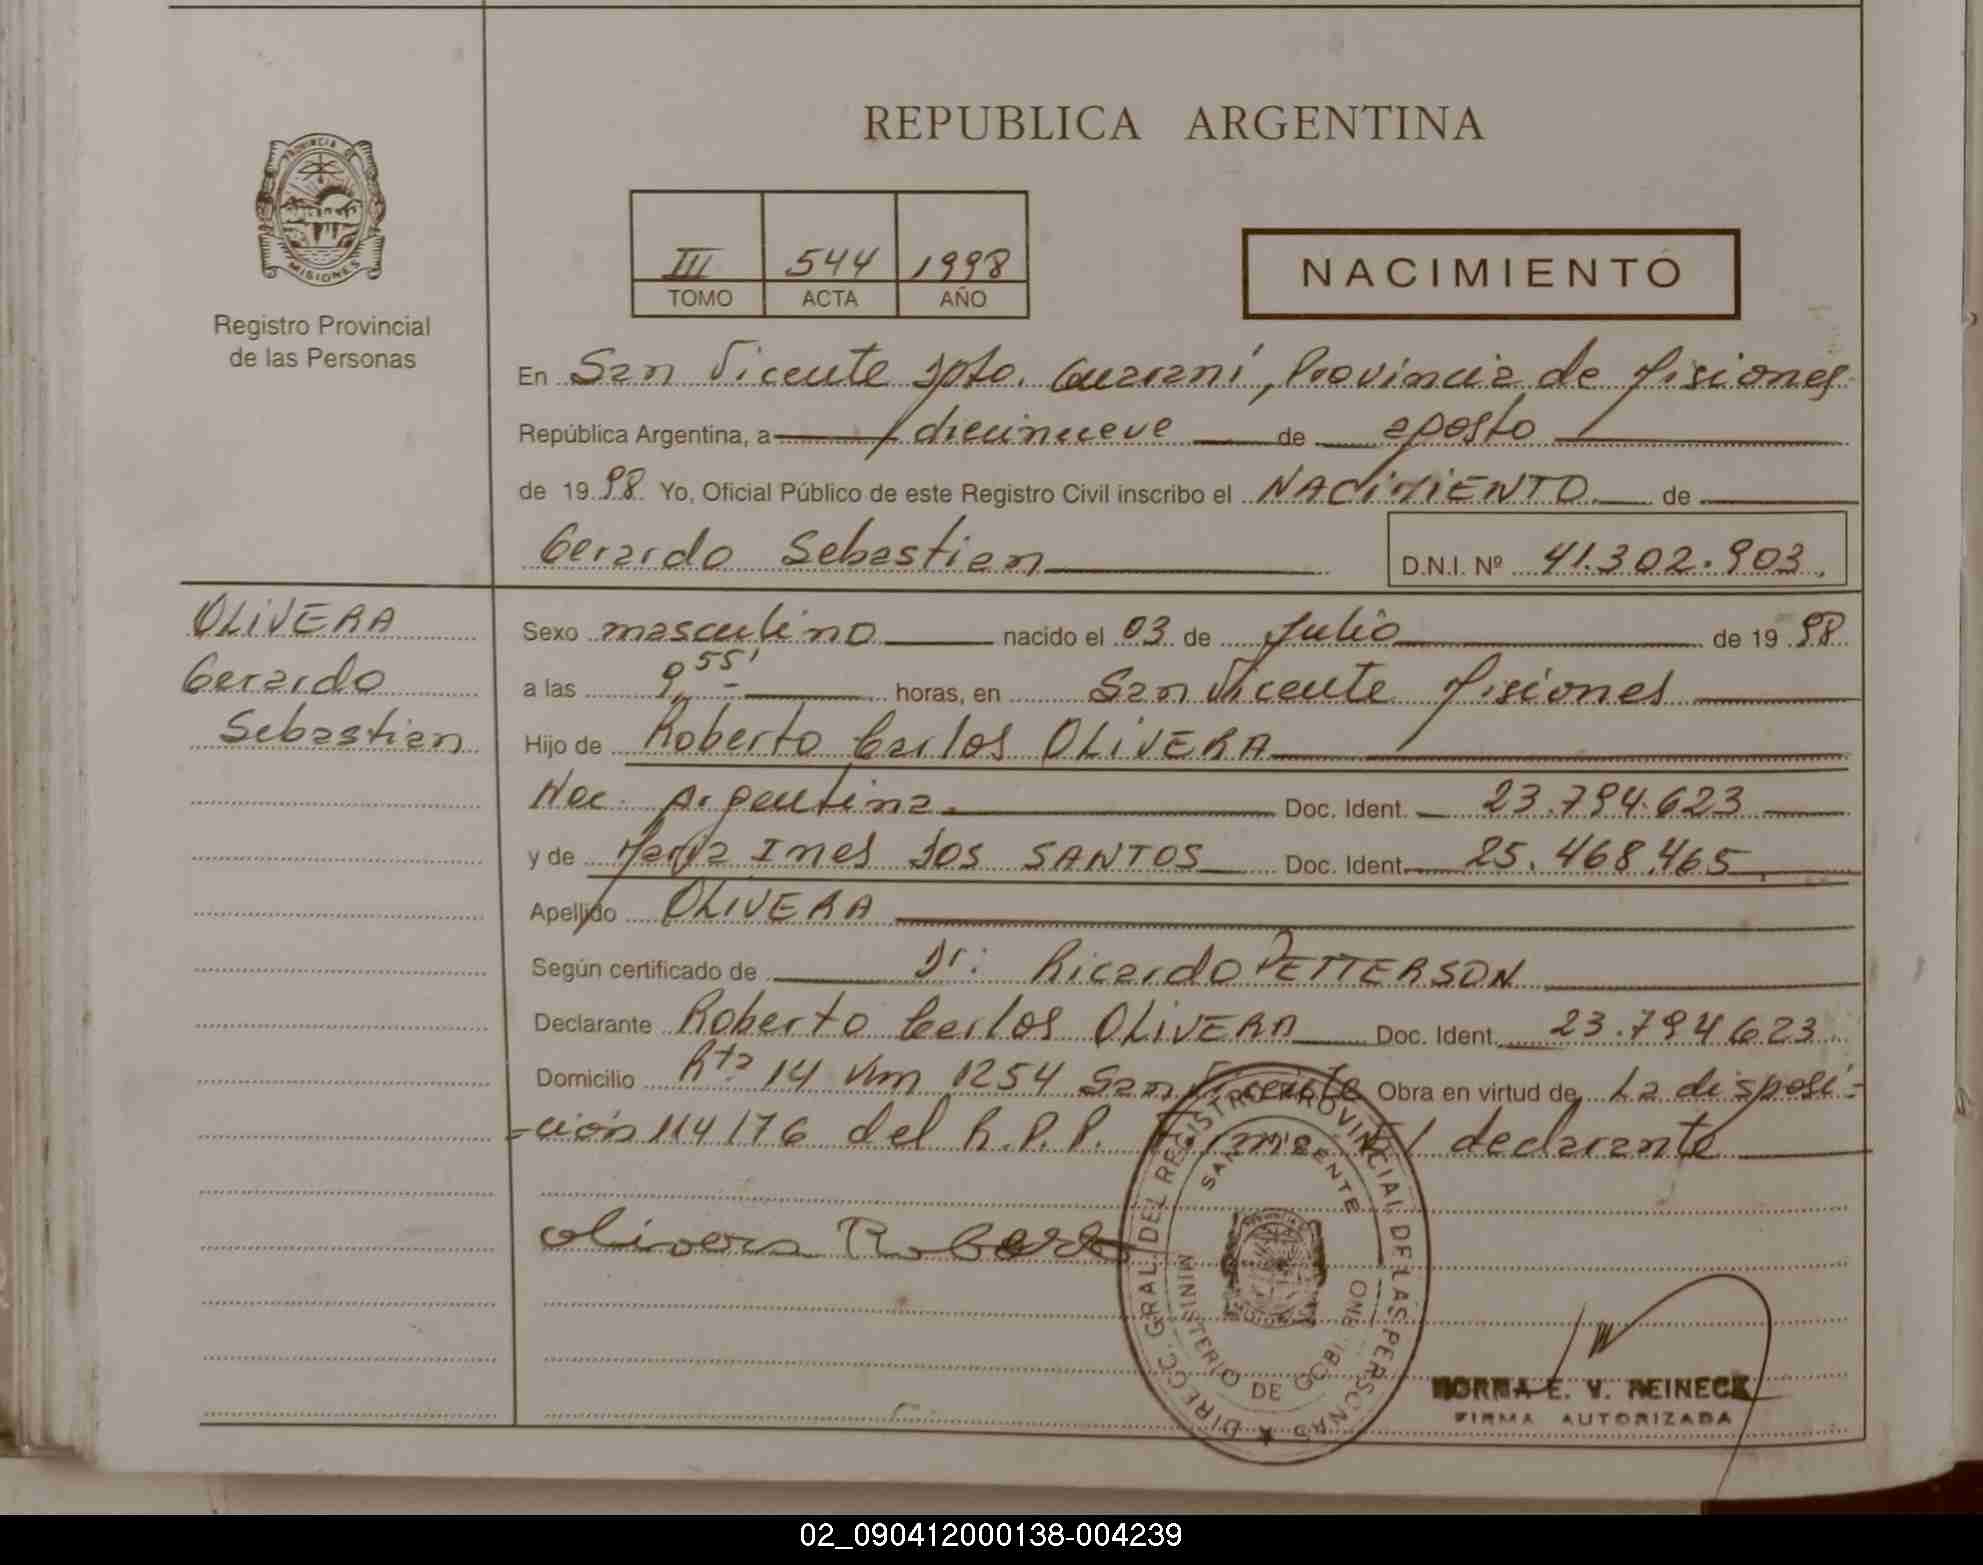 REPUBLICA ARGENTINA
PROVINCIA DE
MISIONES
Registro Provincial
de las Personas
III 544 1998
TOMO ACTA AÑO
NACIMIENTO
En San Vicente Dpto. Guaraní, Provincia de Misiones
República Argentina, a diecinueve de agosto
de 1998 Yo, Oficial Público de este Registro Civil inscribo el NACIMIENTO de
Gerardo Sebastian
D.N.I. Nº 41.302.903.
OLIVERA
Gerardo
Sebastian
Sexo masculino nacido el 03 de Julio de 1998
a las 9,55' horas, en San Vicente Misiones
Hijo de Roberto Carlos OLIVERA
Nac. Argentina. Doc. Ident. 23.794.623
y de Maria Ines DOS SANTOS Doc. Ident. 25.468.465.
Apellido OLIVERA
Según certificado de Dr: Ricardo PETTERSON
Declarante Roberto Carlos OLIVERA Doc. Ident. 23.794.623
Domicilio Rta 14 Km 1254 San Vicente Obra en virtud de La disposi-
-ción 114/76 del R.P.P. Firma El declarante
Olivera Roberto
DIRECC. GRAL. DEL REGISTRO PROVINCIAL DE LAS PERSONAS
SAN VICENTE
MINISTERIO DE GOBIERNO
NORMA E. V. REINECK
FIRMA AUTORIZADA
02_090412000138-004239